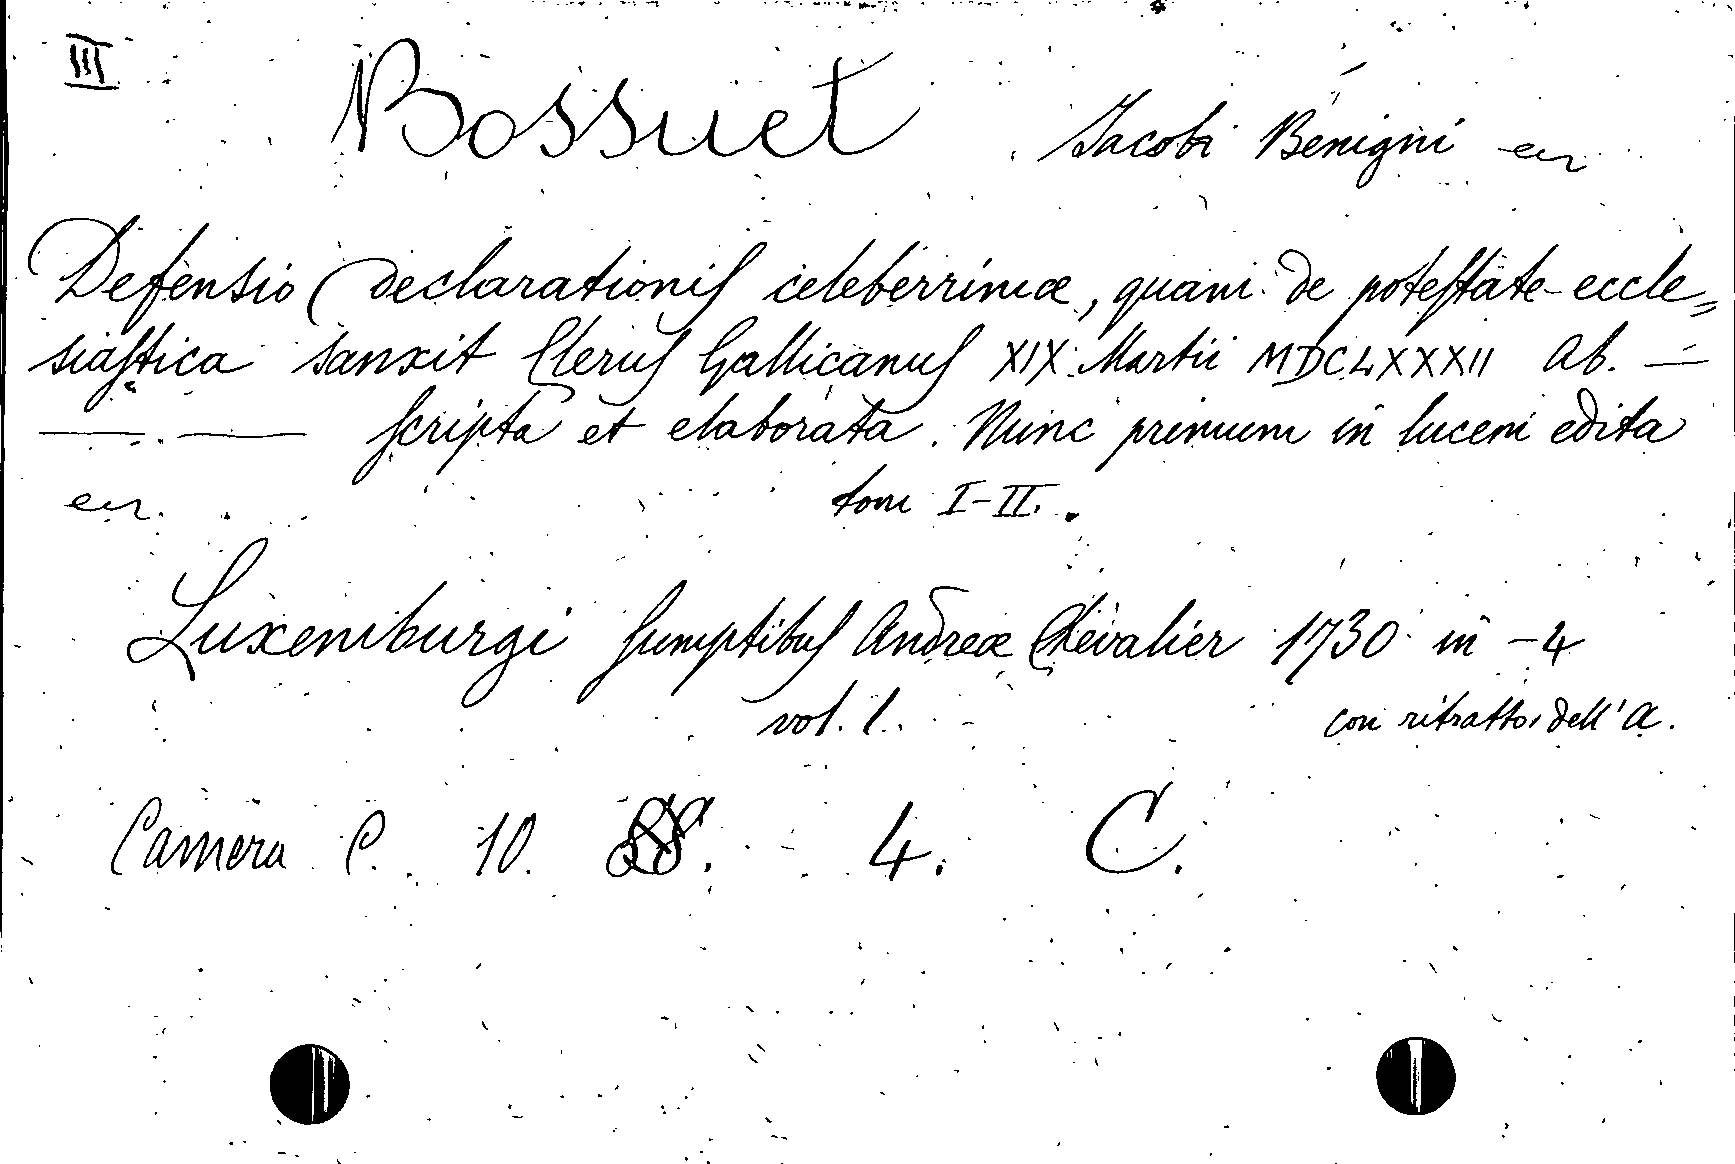 III
Bossuet Jacobi Benigni
Defensio declarationis celeberrimæ, quam de potestate eccle=
siastica sanxit Clerus Gallicanus XIX Martii MDCLXXXII Ab. —
— . — scripta et elaborata. Nunc primum in lucem edita
tom I-II.
Luxemburgi sumptibus Andreæ Chevalier 1730 in -4
vol. 1. con ritratto dell'A.
Camera C. 10. 4. C.